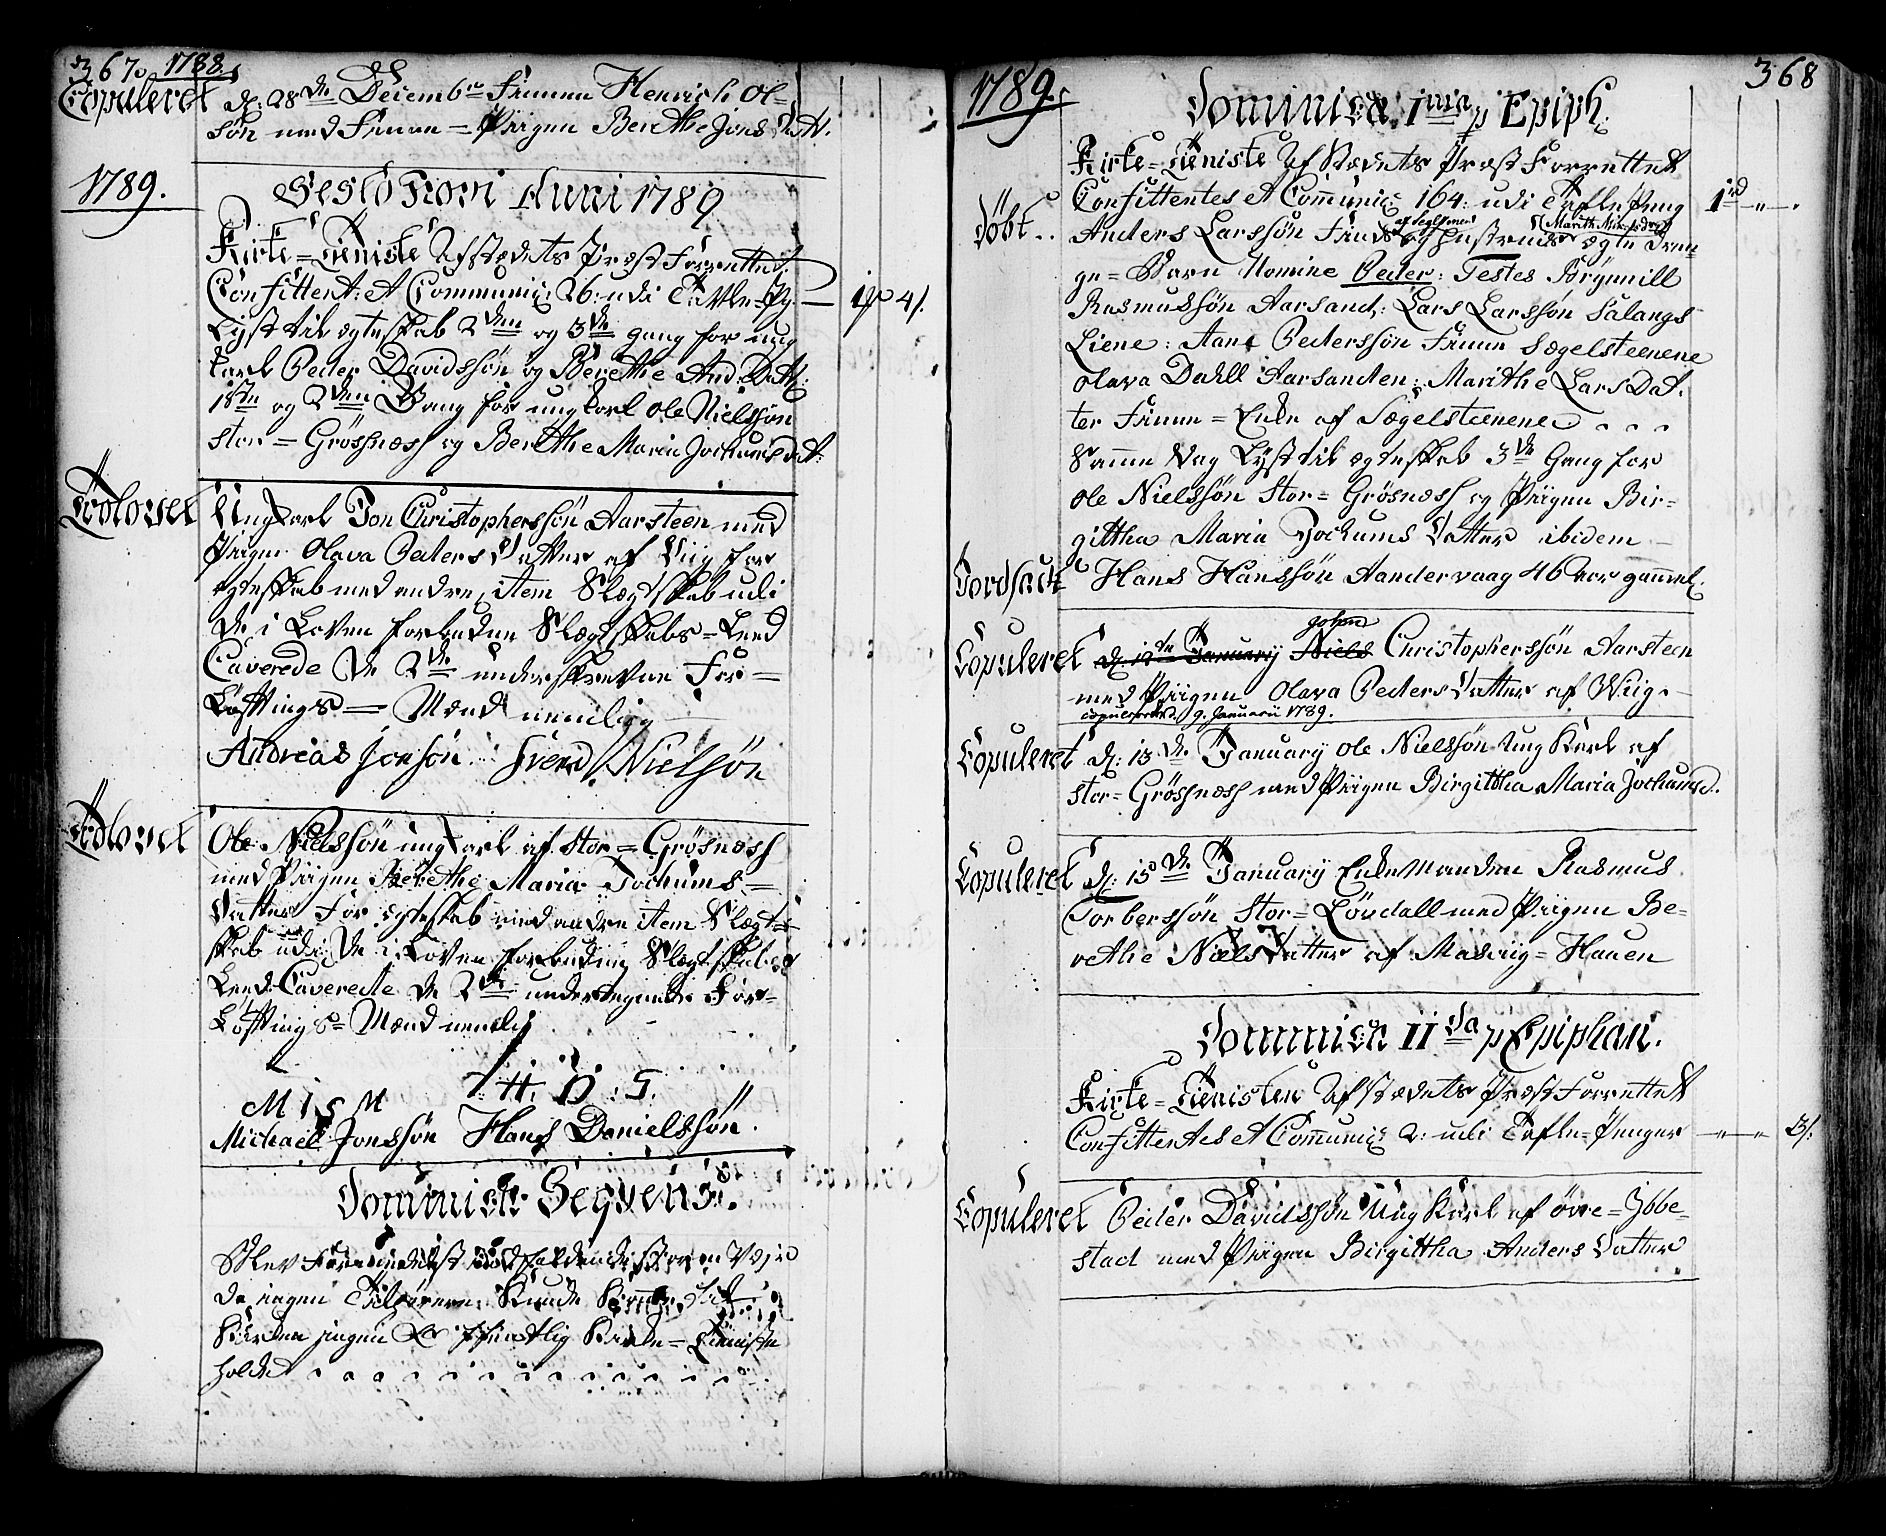 367. 1788.
Copuleret d: 28de Decembr Finnen Henrich Ol-
søn med Finne = Piigen Berethe Jons Dat.
1789.
Festo Novi Anni 1789
Kirke = Tieniste Af Stædets Præst Forrettet
Confittent: et Communic: 26: udi Tavle-Pg. — 1 p 4 s.
Lyst til Ægteskab 2den og 3de gang for ung
Karl Peder Davidssøn og Berethe And: Datt:
1ste og 2den Gang for ung Karl Ole Nielssøn
Stor = Grösnæss og Berethe Maria Jochumsdat:
Trolovet Ung Karl Jon Christophersøn Aarsteen med
Piigen Olava Peders Datter af Viig for
Ægteskab med andre, item Slægtskab udi
de i Loven forbudne Slægtskabs = Leed
Caverede de 2de underskrevne For =
Løftnings = Mænd nemlig
Andreas Jonsøn Svend Nielsøn
Trolovet Ole Nielssøn ung Karl af Stor = Grösnæss
med Piigen Berethe Maria Jochums =
Datter For Ægteskab med andre item Slægt =
skab udi de i Loven forbudne Slægtskabs
Leed Caverede de 2de undertegnede For =
Løftnings = Mænd nemlig
M I S M H. D: S.
Michael Jonssøn Hans Danielssøn.
Dominica Seqvens.
Blev Formedelst indfaldende Storm Vejr
da ingen Tilhørere kunde komme til
Kirken ingen offentlig Kirke = Tieniste
holdet
1789. 368
Dominica Ima p Epiph.
Kirke = Tieniste Af Stædets Præst Forrettet
Confittentes et Communic: 164: udi Tafle Peng 1rd — " — .
Døbt.. Anders Larssøn Finds af Seglstenen og Hustrues Marith Mik.sdotter ægte Dren-
ge = Barn Nomine Peder: Testes Brynnill
Rasmussøn Aarsand: Lars Larssøn Salangs
Liene: Aane Pederssøn Finn Sægelsteenene
Olava Dahll Aarsanden: Marithe Lars Dat
ter Finne = Enke af Sægelsteenene
Samme Dag Lyst til Ægteskab 3de Gang for
Ole Nielssøn Stor = Grösnæss og Piigen Bir-
gittha Maria Jochums Datter ibidem
Jordfæst Hans Hanssøn Aandervaag 46 aar gammel.
Copuleret d: 12te January Niels John Christopherssøn Aarsteen
med Piigen Olava Peders Datter af Wiig.
copulered d. 9. Januarii 1789.
Copuleret d: 13de January Ole Nielssøn Ung Karl af
Stor = Grössnæss med Piigen Birgittha Maria Jochumsd.
Copuleret d: 15de January Enke Manden Rasmus
Torberssøn Stor = Lövdall med Piigen Be-
rethe Niels Datter af Masviig = Hauen
Dominica IIda p Epiphan.
Kirke = Tienisten Af Stædets Præst Forrettet
Confittentes et Communic: 2: udi Tafle = Penger — " — 3 s.
Copuleret Peder Davidssøn Ung Karl af øvre = Ibbe-
stad med Piigen Birgittha Anders Datter